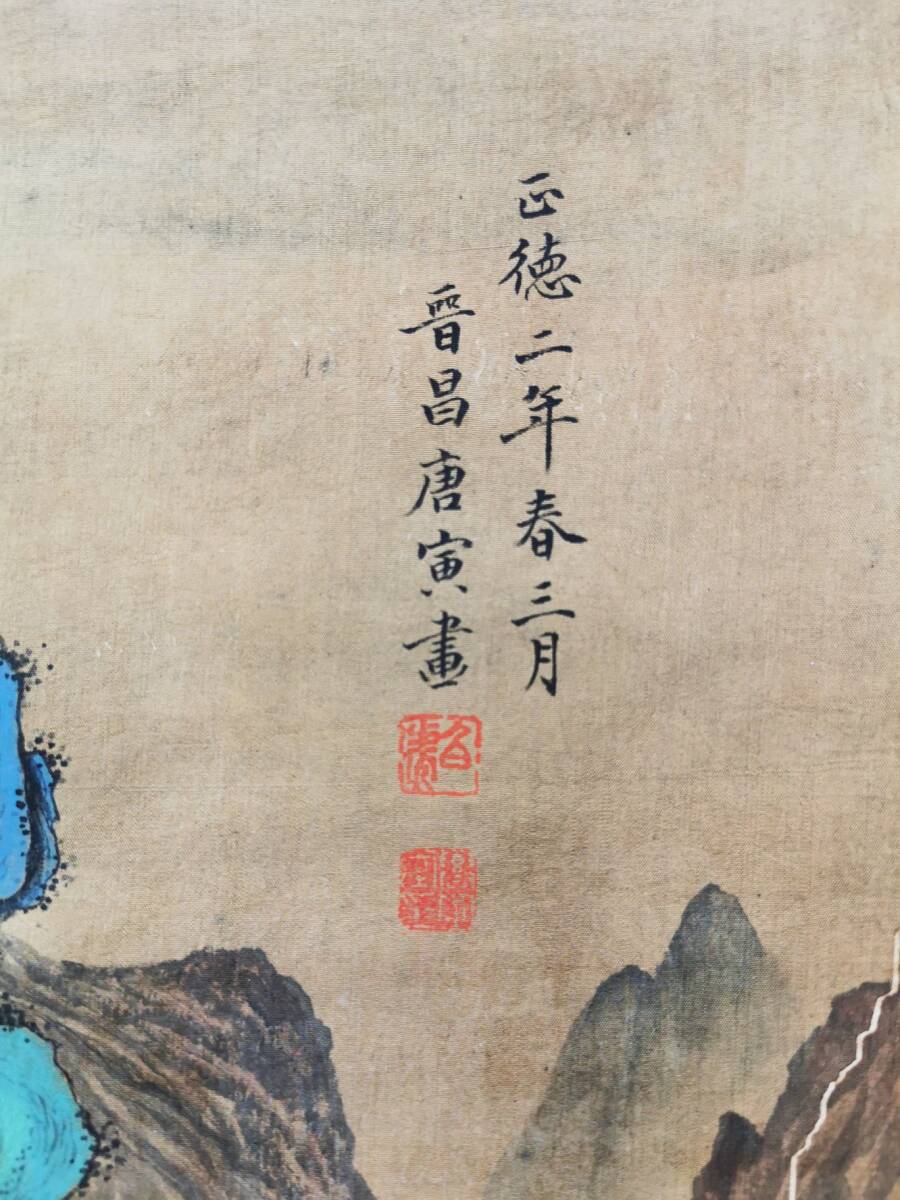 正德二年春三月
晉昌唐寅畫